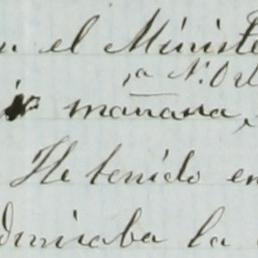 en el Ministe
, a N. Orl
mañana,
He tenido en
dminaba la